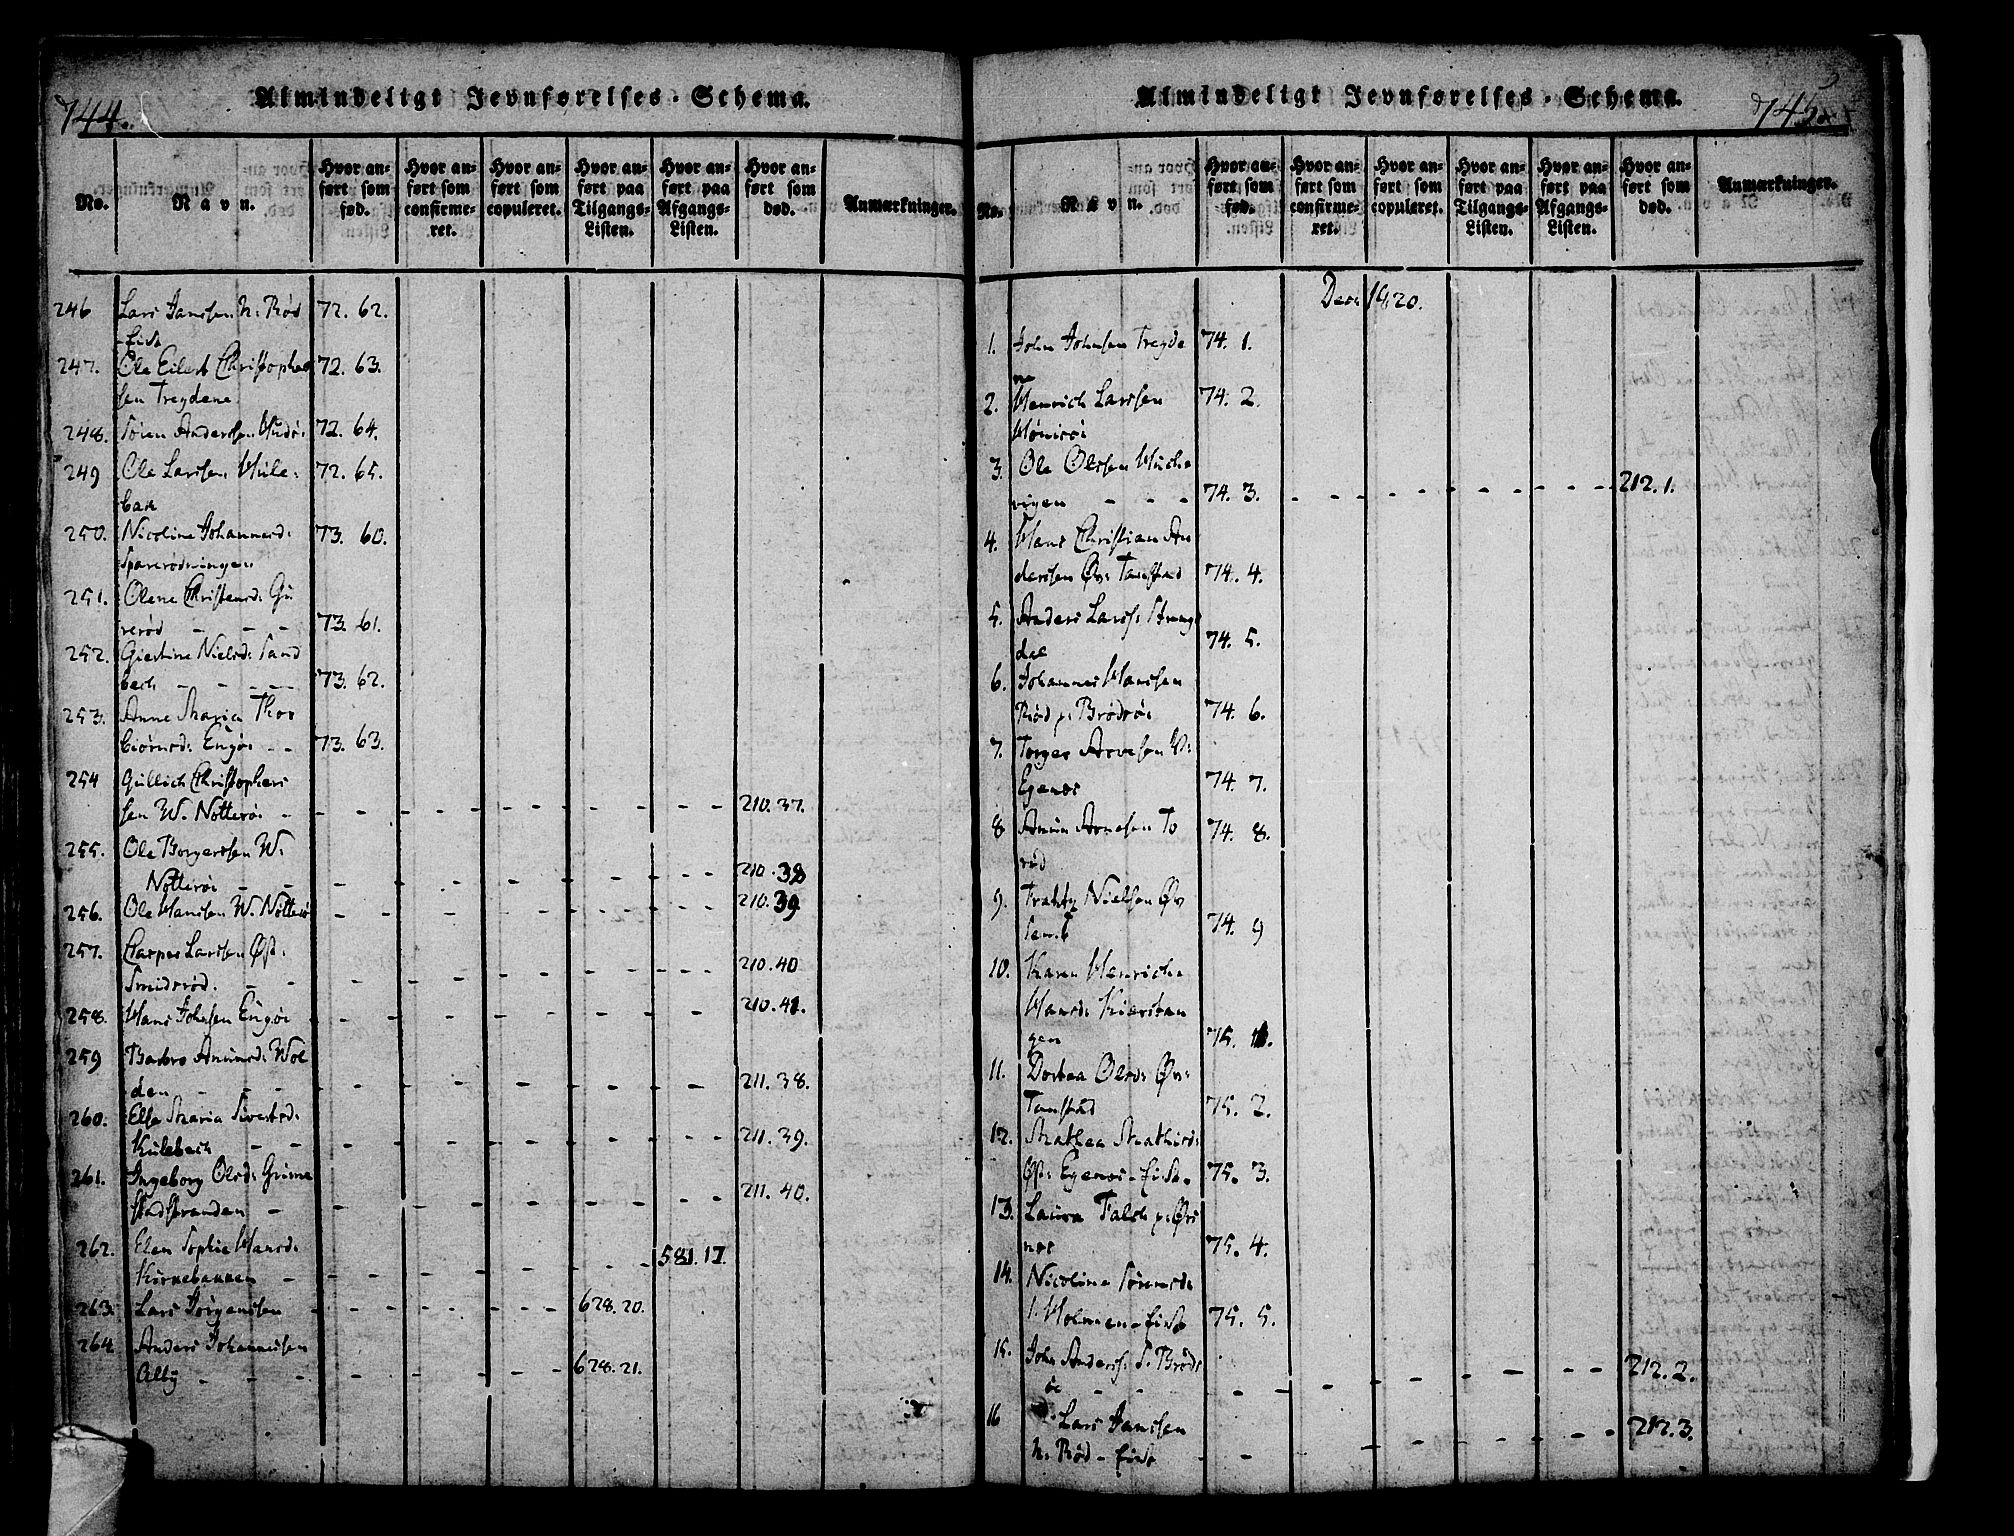 744.
Almindeligt Jevnførelses-Schema.
No.
Navn.
Hvor anført som fød.
Hvor anført som confirmeret.
Hvor anført som copuleret.
Hvor anført paa Tilgangs-Listen.
Hvor anført paa Afgangs-Listen.
Hvor anført som død.
Anmærkninger.
246 Lars Jansen N. Rød 72. 62.
-Eide
247. Ole Eilert Christopher 72. 63.
sen Tregdene
248. Søren Anderssen 72. 64.
249 Ole Larssen Hule- 72. 65.
bak
250. Nicoline Johannesd: 73. 60.
251. Olene Christensd: Gu
rerød - - - 73. 61.
252. Giestine Nielsd: Sand
bech - - - - 73. 62.
253. Anne Maria Thor
biørnsd: Engøe - - 73. 63.
254 Gullich Christophers
sen W. Nøtterøe - - - - - - - 210. 37.
255. Ole Borgersen W.
Nøtterøe - - - - - - - 210. 38
256. Ole Hansen W. Nøtterø - - - - - - - 210. 39
257. Casper Larssen Øst:
Smidsrød. - - - - - - - 210. 40
258. Hans Johnsen Engøe - - - - - - - 210. 41.
259 Barbro Amundsd: Wol
den - - - - - - - 211. 38.
260. Else Maria Sivertsd:
Kulebech - - - - - - - 211. 39.
261. Ingeborg Olsd: Grime
stadstranden - - - - - - - 211. 40.
262. Elen Sophie Hansd:
- - - - - - - 581. 17.
263. Lars Jørgensen - - - - - - 628. 20.
264 Anders Johannesen
Alby - - - - - - 628. 21.
745.
Almindeligt Jevnførelses-Schema.
No.
Navn.
Hvor anført som fød.
Hvor anført som confirmeret.
Hvor anført som copuleret.
Hvor anført paa Tilgangs-Listen.
Hvor anført paa Afgangs-Listen.
Hvor anført som død.
Anmærkninger.
1820.
1. John Johnsen Tregde 74. 1.
ne
2. Henrich Larssen 74. 2.
3. Ole Olssen
vigen - - - 74. 3. - - - - - - - 212. 1.
4. Hans Christian An
derssen Øv: Tanstad 74. 4.
5. Anders Larss:
dal 74. 5.
6. Johannes Hanssen
Rød p: Brødrøe 74. 6.
7. Torger Arvesen W:
Egenes 74. 7.
8 Amun Arnesen To 74. 8.
rød
9. Nielsen Øv
74. 9
10. Karen Henriche
Hansd: Kierstan
gen 75. 1.
11. Dorthea Olsd: Øv:
Tanstad 75. 2.
12. Mathea Mathisd:
Øst: Egenes-Eide. 75. 3.
13. Laura Falch p: Ørs
nes 75. 4.
14. Nicoline Sørensd:
Holmen-Eide 75. 5.
15. John Anderss: S. Brødr
øe - - - - - - - 212. 2.
16 Lars Jansen
N. Rød - Eide - - - - - - - 212. 3.